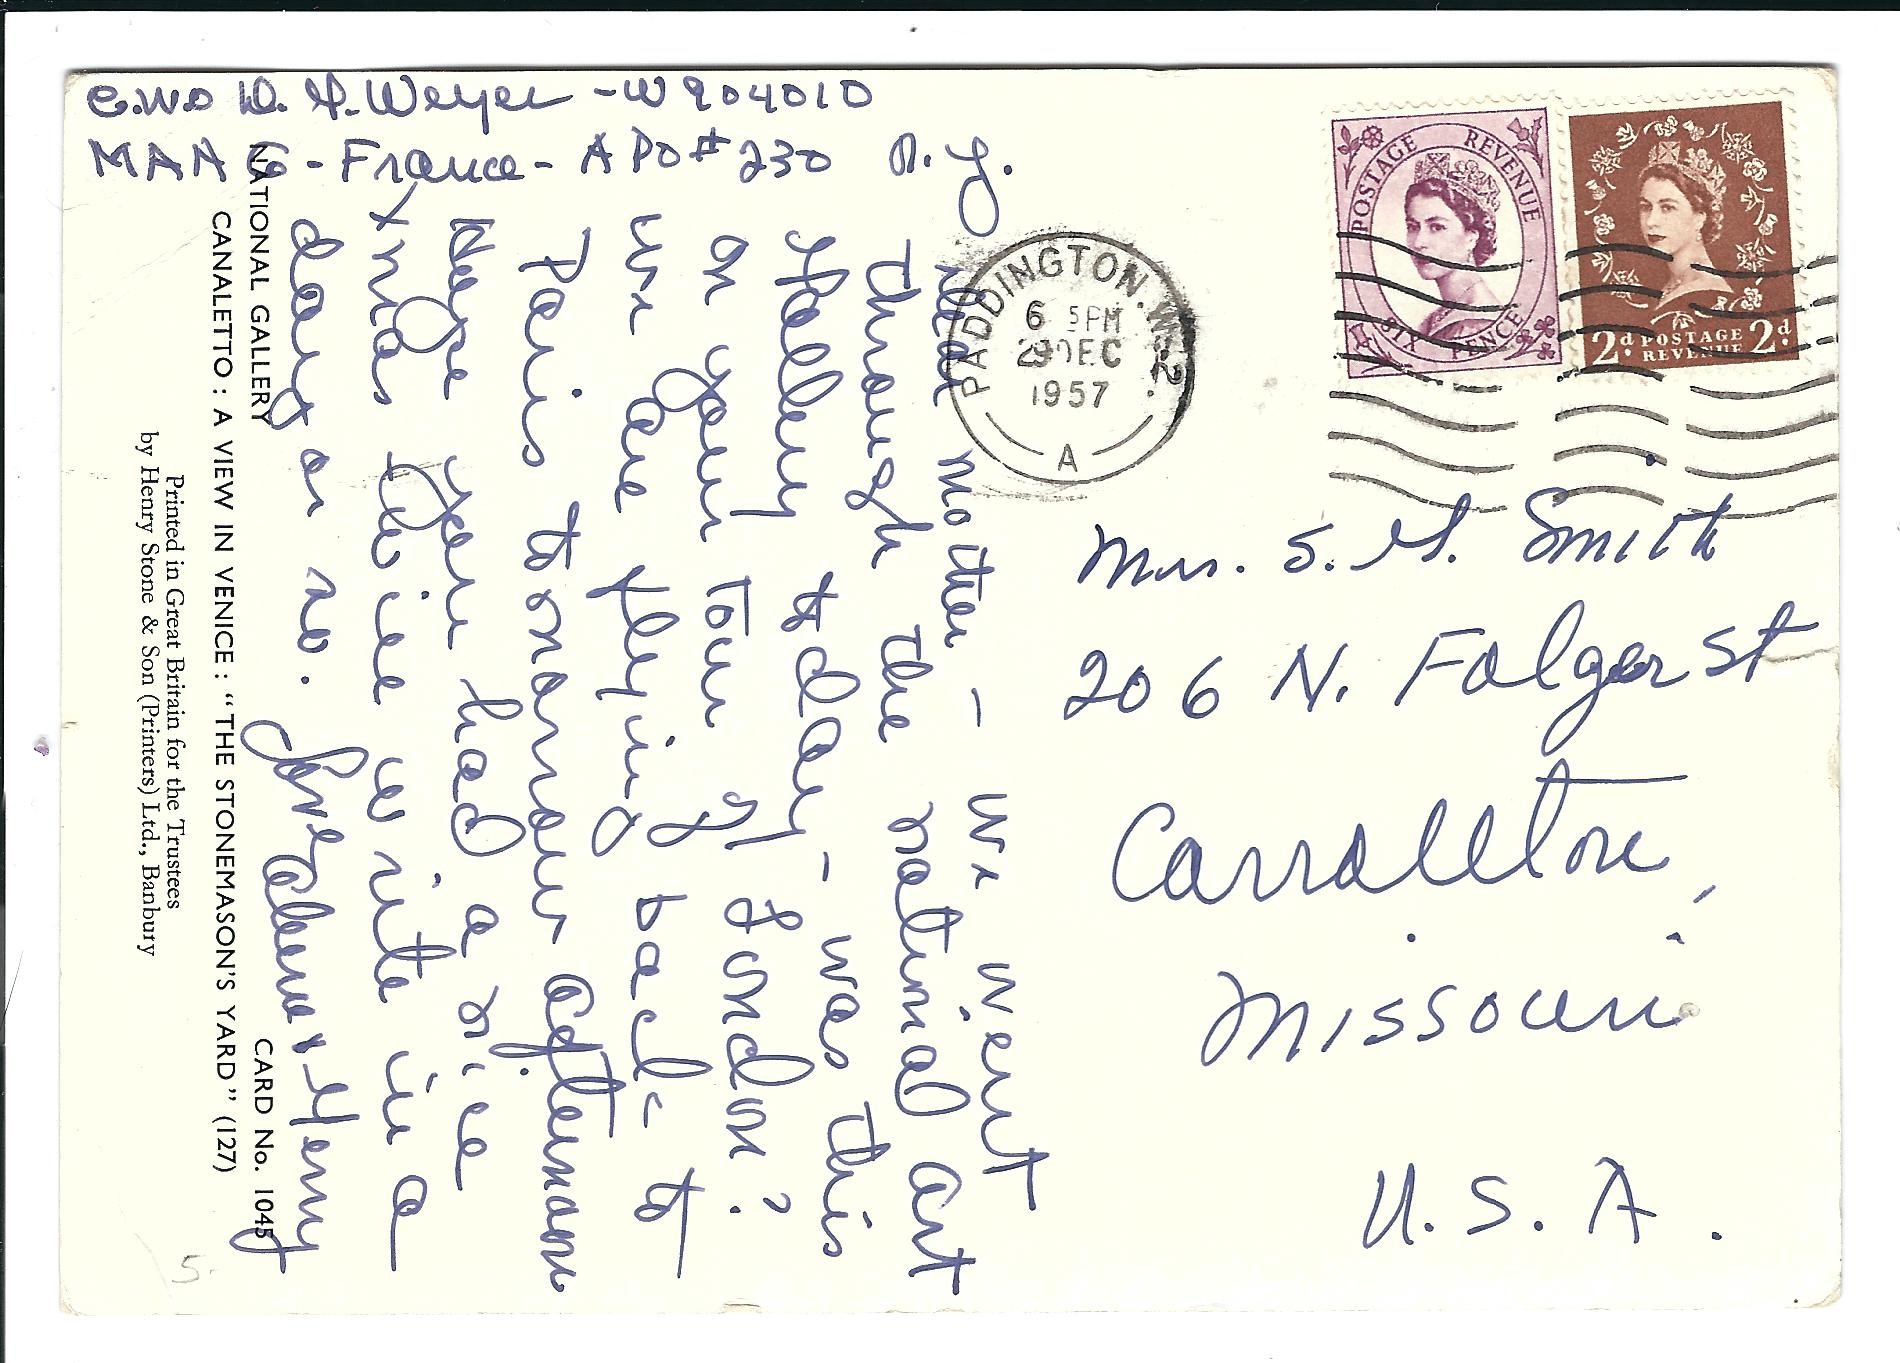 C.W.O. D. H. Weyer - W904010
MAAG - France - APO # 230 N.Y.
Dear Mother - We went
through the National Art
Gallery today - was this
on your tour of London?
We are flying back to
Paris tomorrow afternoon
Hope you had a nice
Xmas. Will write in a
day or so. Love
& Henry
PADDINGTON. W.2.
6 5PM
29 DEC
1957
A
POSTAGE REVENUE
SIX PENCE
2d POSTAGE 2d
REVENUE
Mrs. S. G. Smith
206 N. Folger St
Carrollton,
Missouri
U.S.A.
NATIONAL GALLERY CARD No. 1045
CANALETTO : A VIEW IN VENICE : "THE STONEMASON'S YARD" (127)
Printed in Great Britain for the Trustees
by Henry Stone & Son (Printers) Ltd., Banbury
5-